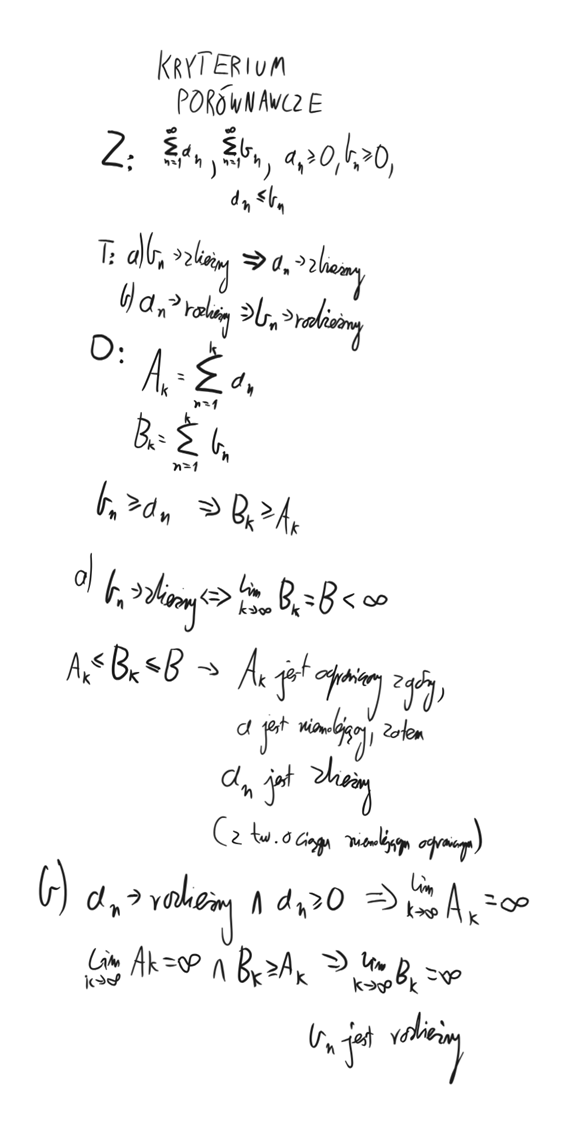 KRYTERIUM
PORÓWNAWCZE
Z: ∑_{n=1}^{∞} a_n, ∑_{n=1}^{∞} b_n, a_n ≥ 0, b_n ≥ 0,
a_n ≤ b_n
T: a) b_n → zbieżny ⇒ a_n → zbieżny
b) a_n → rozbieżny ⇒ b_n → rozbieżny
D: A_k = ∑_{n=1}^{k} a_n
B_k = ∑_{n=1}^{k} b_n
b_n ≥ a_n ⇒ B_k ≥ A_k
a) b_n → zbieżny ⇔ lim_{k→∞} B_k = B < ∞
A_k ≤ B_k ≤ B → A_k jest ograniczony z góry,
a jest niemalejący, zatem
a_n jest zbieżny
(z tw. o ciągu niemalejącym ograniczonym)
b) a_n → rozbieżny ∧ a_n ≥ 0 ⇒ lim_{k→∞} A_k = ∞
lim_{k→∞} A_k = ∞ ∧ B_k ≥ A_k ⇒ lim_{k→∞} B_k = ∞
b_n jest rozbieżny